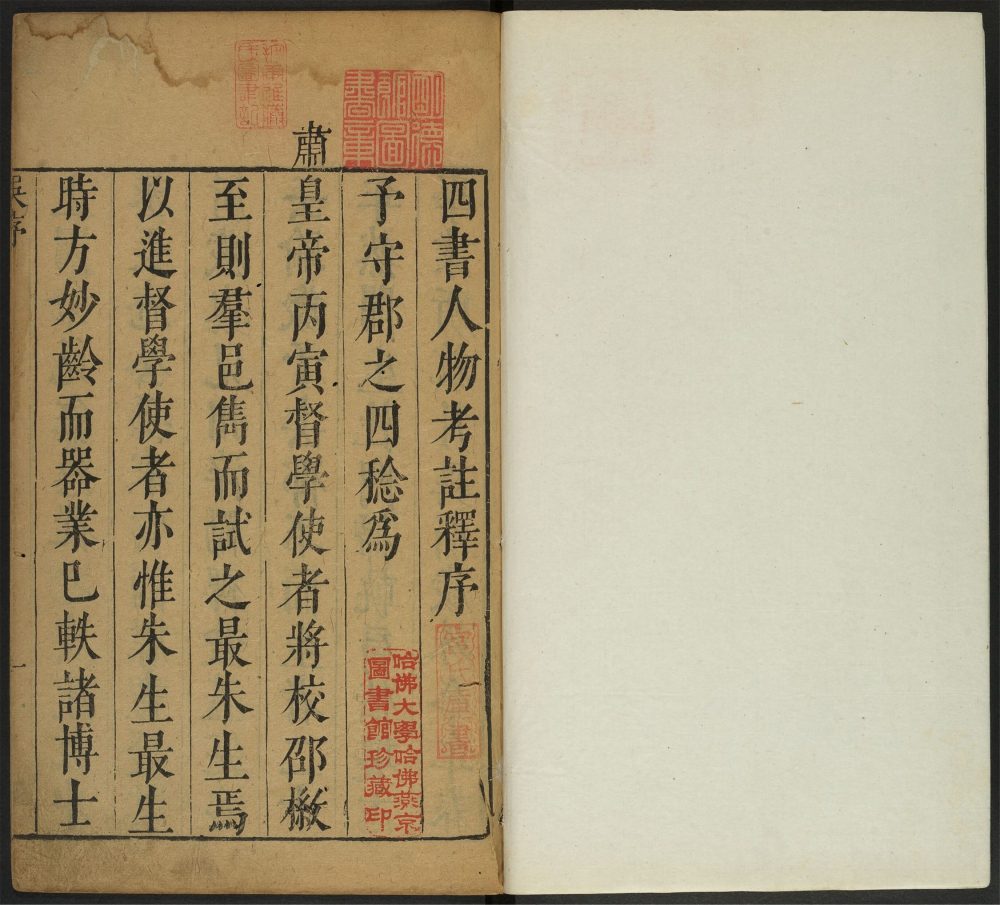 四書人物考註釋序
予守郡之四稔爲
肅皇帝丙寅督學使者將校邵檄
至則羣邑雋而試之最朱生焉
以進督學使者亦惟朱生最生
時方妙齡而器業已軼諸博士
吳序
一
哈佛大學哈佛燕京
圖書館珍藏印